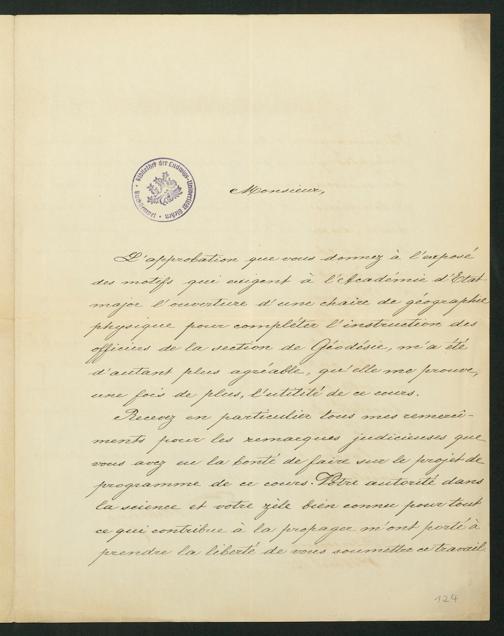 Bibliothek der Ludwigs-Universität Giessen
Monsieur,
L'approbation que vous donnez à l'exposé
des motifs qui exigent à l'Académie d'Etat
major l'ouverture d'une chaire de géographie
physique pour compléter l'instruction des
officiers de la section de Géodésie, m'a été
d'autant plus agréable, qu'elle me prouve,
une fois de plus, l'utilité de ce cours.
Recevez en particulier tous mes remerci-
ments pour les remarques judicieuses que
vous avez eu la bonté de faire sur le projet de
programme de ce cours. Votre autorité dans
la science et votre zèle bien connu pour tout
ce qui contribue à la propager m'ont porté à
prendre la liberté de vous soumettre ce travail
124